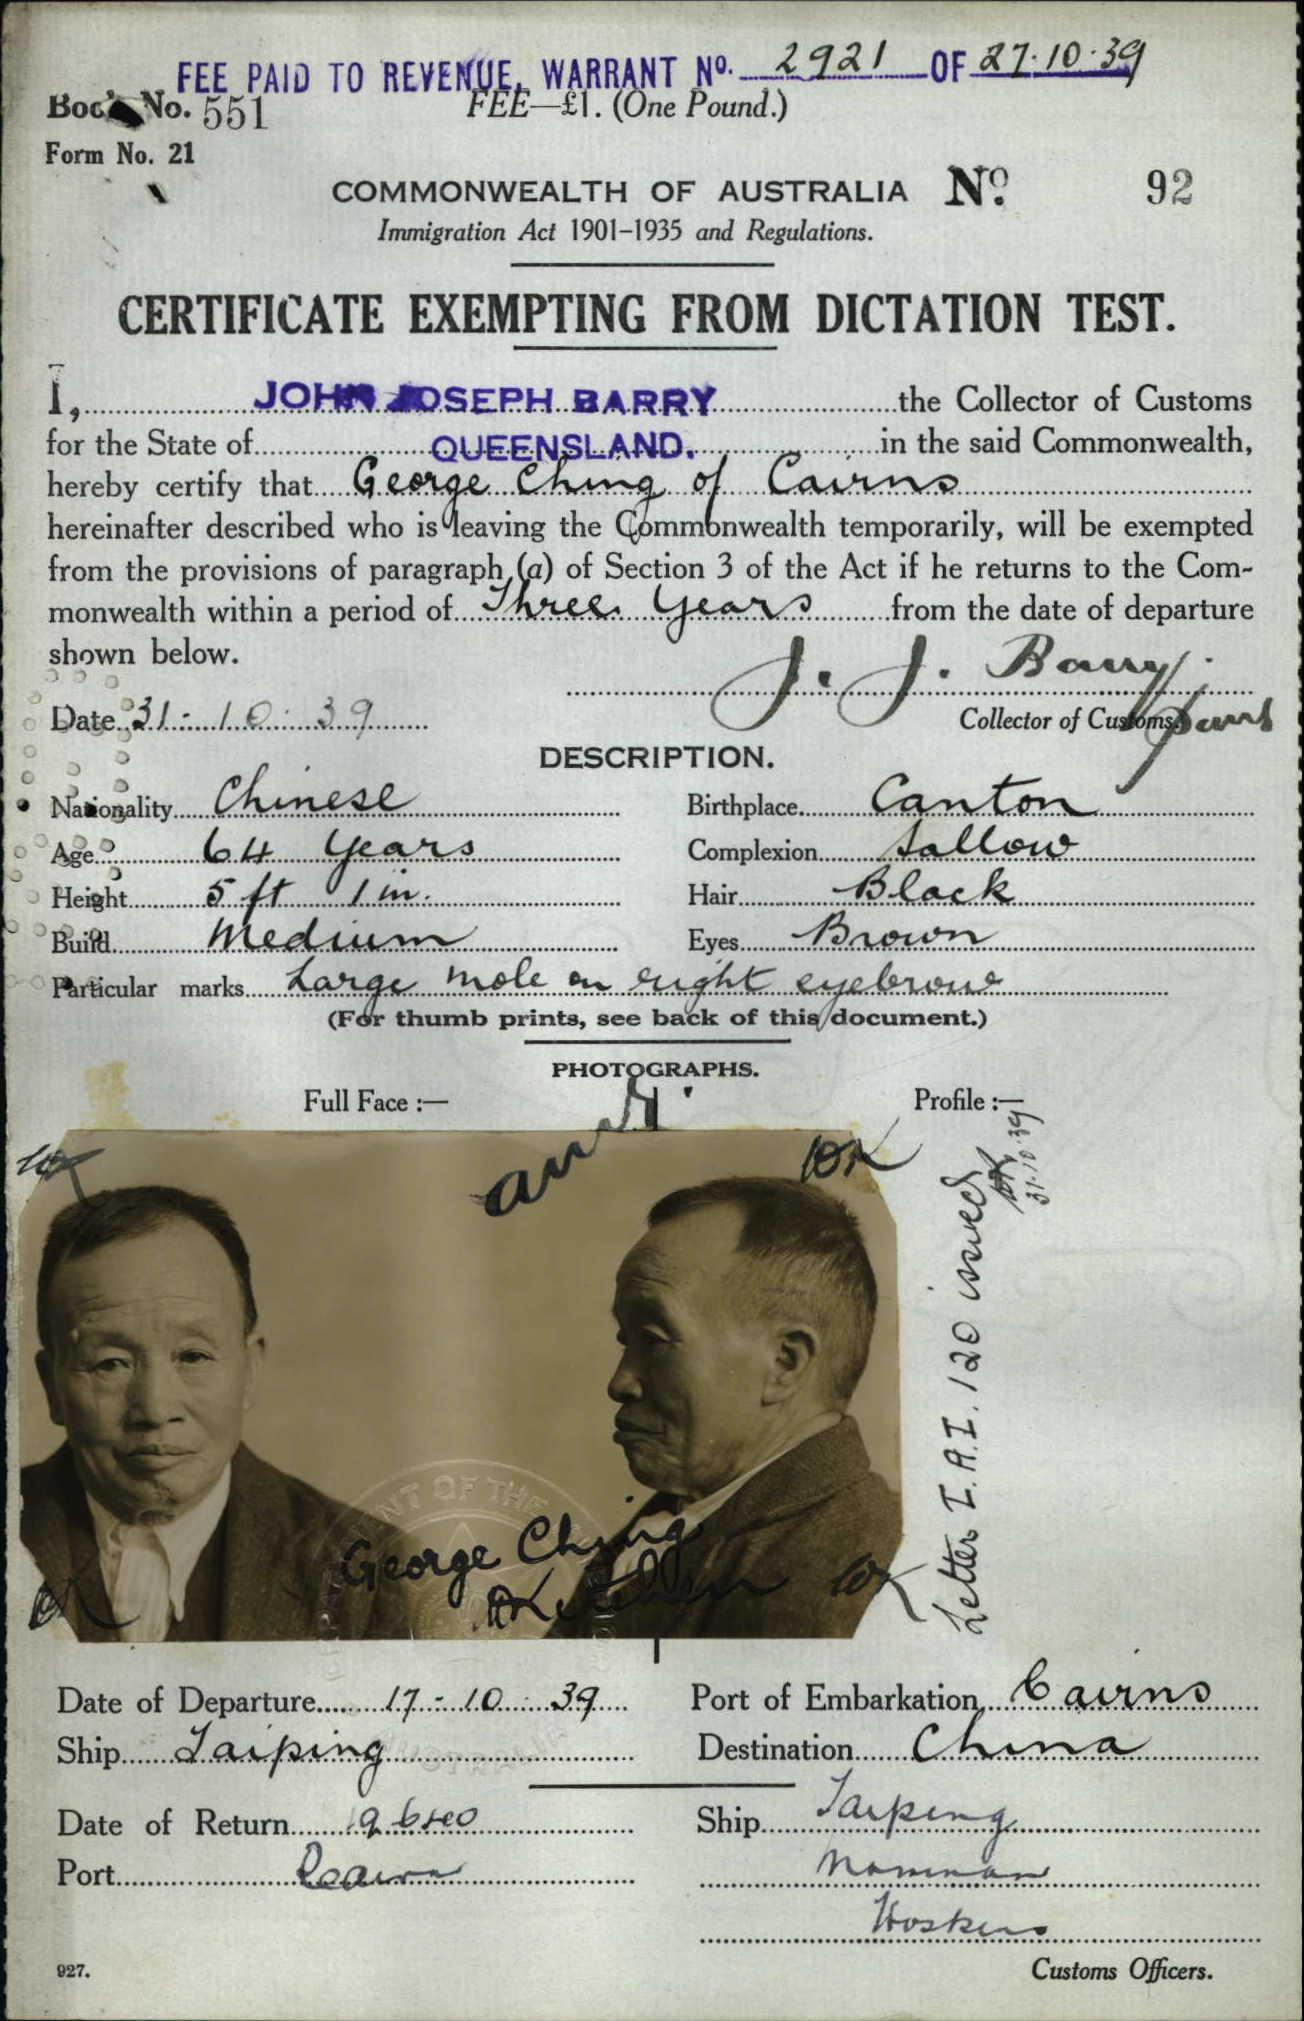 FEE PAID TO REVENUE, WARRANT No. 2921 OF 27.10.39
Book No. 551 FEE—£1. (One Pound.)
Form No. 21
COMMONWEALTH OF AUSTRALIA No. 92
Immigration Act 1901–1935 and Regulations.
CERTIFICATE EXEMPTING FROM DICTATION TEST.
I, JOHN JOSEPH BARRY the Collector of Customs
for the State of QUEENSLAND. in the said Commonwealth,
hereby certify that George Ching of Cairns
hereinafter described who is leaving the Commonwealth temporarily, will be exempted
from the provisions of paragraph (a) of Section 3 of the Act if he returns to the Com-
monwealth within a period of Three Years from the date of departure
shown below.
J. J. Barry
Date 31-10-39 Collector of Customs.
DESCRIPTION.
Nationality Chinese Birthplace Canton
Age 64 Years Complexion Sallow
Height 5 ft 1 in. Hair Black
Build Medium Eyes Brown
Particular marks Large mole on right eyebrow
(For thumb prints, see back of this document.)
PHOTOGRAPHS.
Full Face :— Profile :—
George Ching
Letter I.A.I. 120 issued
31.10.39
Date of Departure 17-10-39 Port of Embarkation Cairns
Ship Taiping Destination China
Date of Return 19 6 40 Ship Taiping
Port
Hoskins
927. Customs Officers.